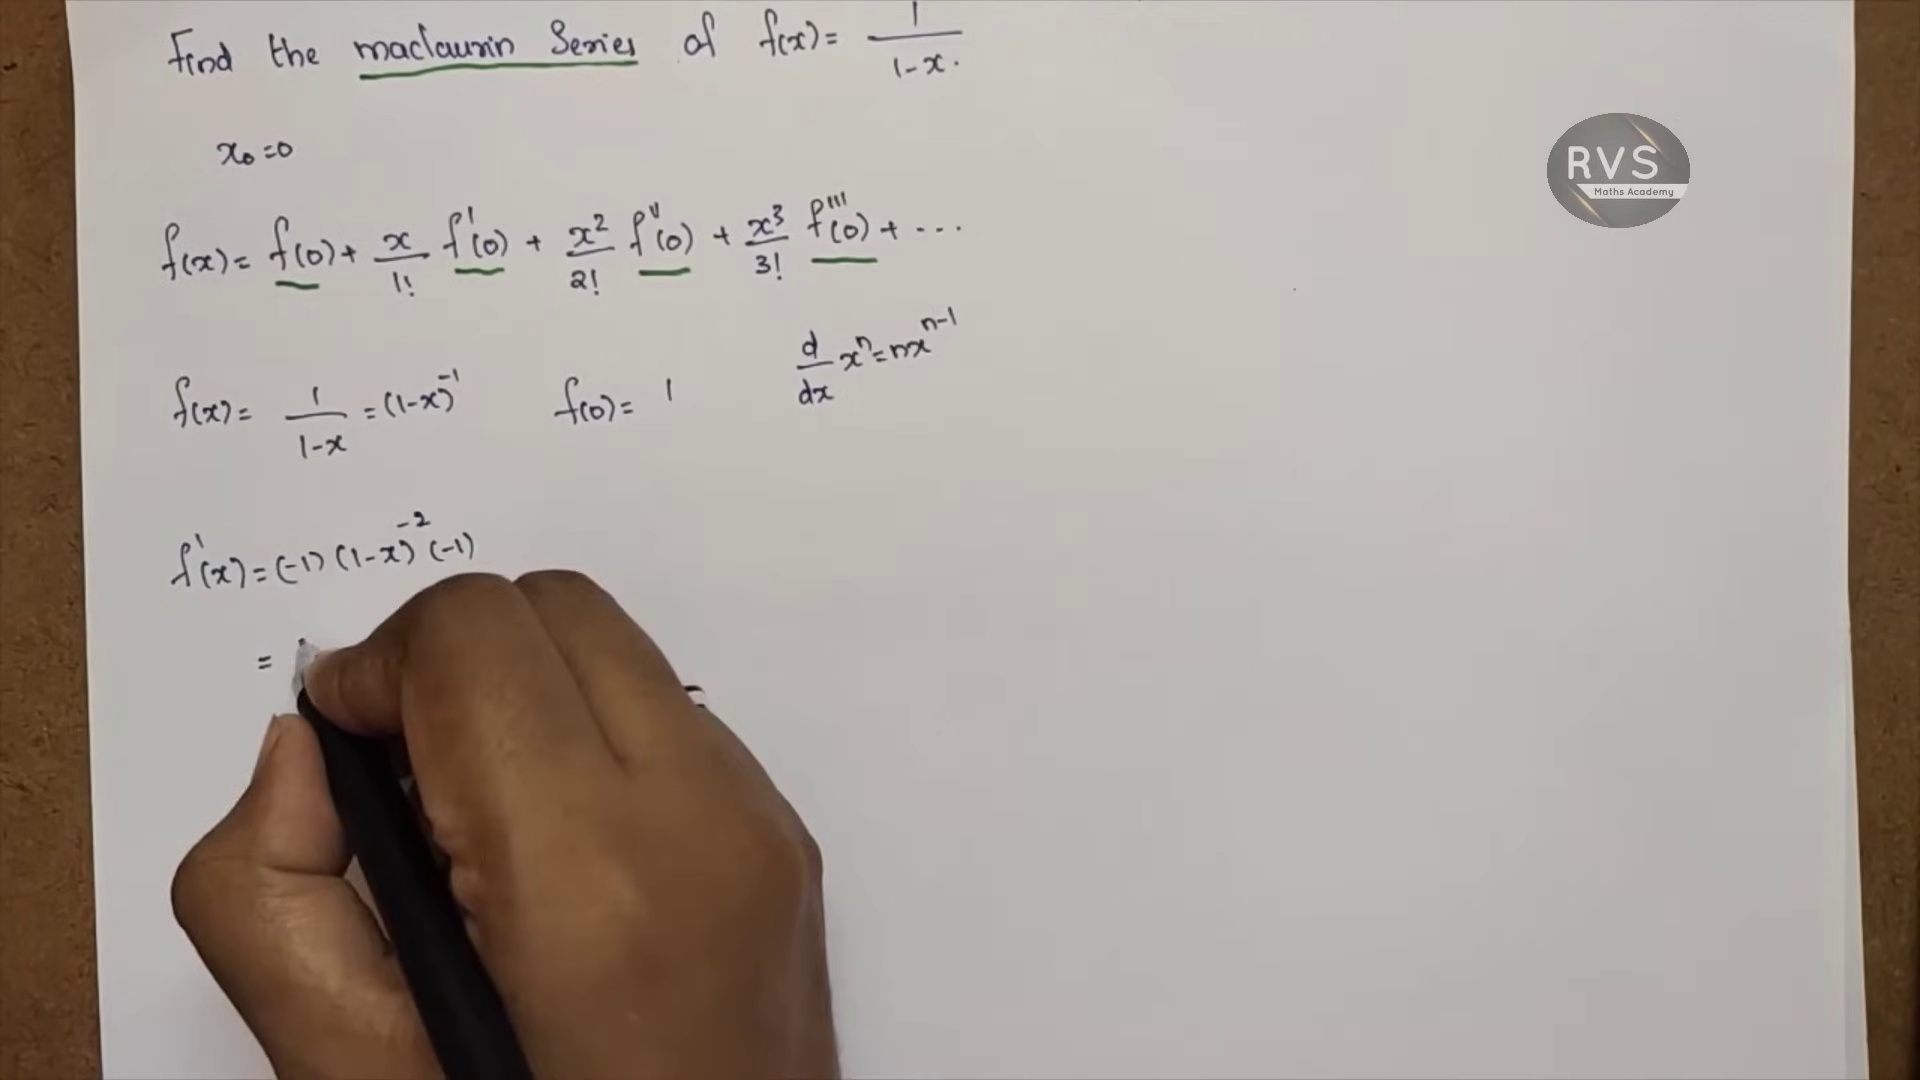 Find the maclaurin Series of f(x) = 1/1-x.
RVS
Maths Academy
x₀=0
f(x) = f(0) + x/1! f'(0) + x²/2! f''(0) + x³/3! f'''(0) + ...
d/dx xⁿ = nxⁿ⁻¹
f(x) = 1/1-x = (1-x)⁻¹ f(0) = 1
f'(x) = (-1) (1-x)⁻² (-1)
=